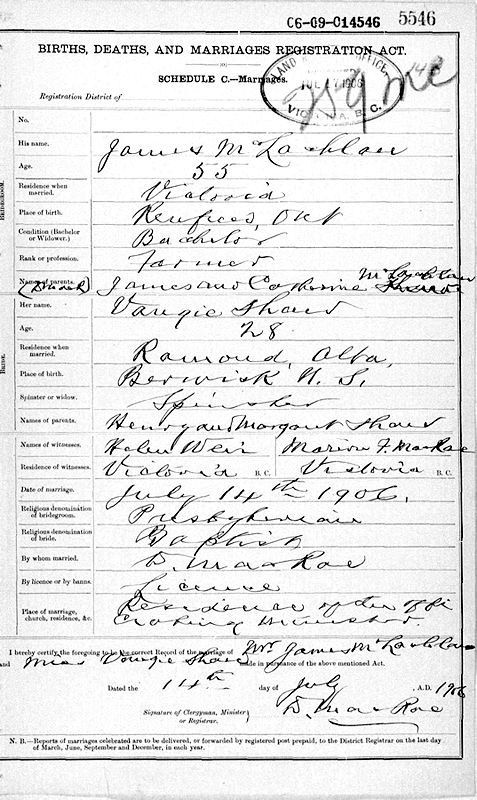 C6-09-014546 5546
BIRTHS, DEATHS, AND MARRIAGES REGISTRATION ACT.
SCHEDULE C.—Marriages.
Registration District of
LAND REGISTRY OFFICE,
JUL 27 1906
VICTORIA, B. C.
No.
His name. James McLachlan
Age. 55
Residence when married. Victoria
Place of birth. Renfrew, Ont
Condition (Bachelor or Widower.) Bachelor
Rank or profession. Farmer
Names of parents. James and Catherine McLachlan
Her name. Vangie Shaw
Age. 28
Residence when married. Ramond, Alta,
Place of birth. Berwick N. S.
Spinster or widow. Spinster
Names of parents. Henry and Margaret Shaw
Names of witnesses. Helen Weir Marion F. MacRae
Residence of witnesses. Victoria B. C. Victoria B. C.
Date of marriage. July 14th 1906.
Religious denomination of bridegroom. Presbyterian
Religious denomination of bride. Baptist
By whom married. D. MacRae
By licence or by banns. Licence
Place of marriage, church, residence, &c. Residence of the offi
ciating minister.
I hereby certify the foregoing to be the correct Record of the marriage of Mr James McLachlan
and Miss Vangie Shaw made in pursuance of the above mentioned Act.
Dated the 14th day of July, A.D. 1906
Signature of Clergyman, Minister or Registrar. D. MacRae
N. B.—Reports of marriages celebrated are to be delivered, or forwarded by registered post prepaid, to the District Registrar on the last day
of March, June, September and December, in each year.